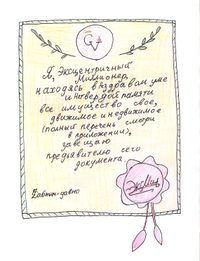 GV
Я, Эксцентричный
Миллионер,
находясь в здравом уме
и твердой памяти
все имущество свое,
движимое и недвижимое
(полный перечень смотри
в приложении),
завещаю
предъявителю сего
документа.
Давным-давно
ЭкМил